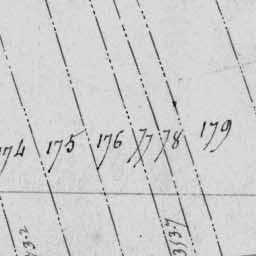 174 175 176 77 78 179
3.2
353.7